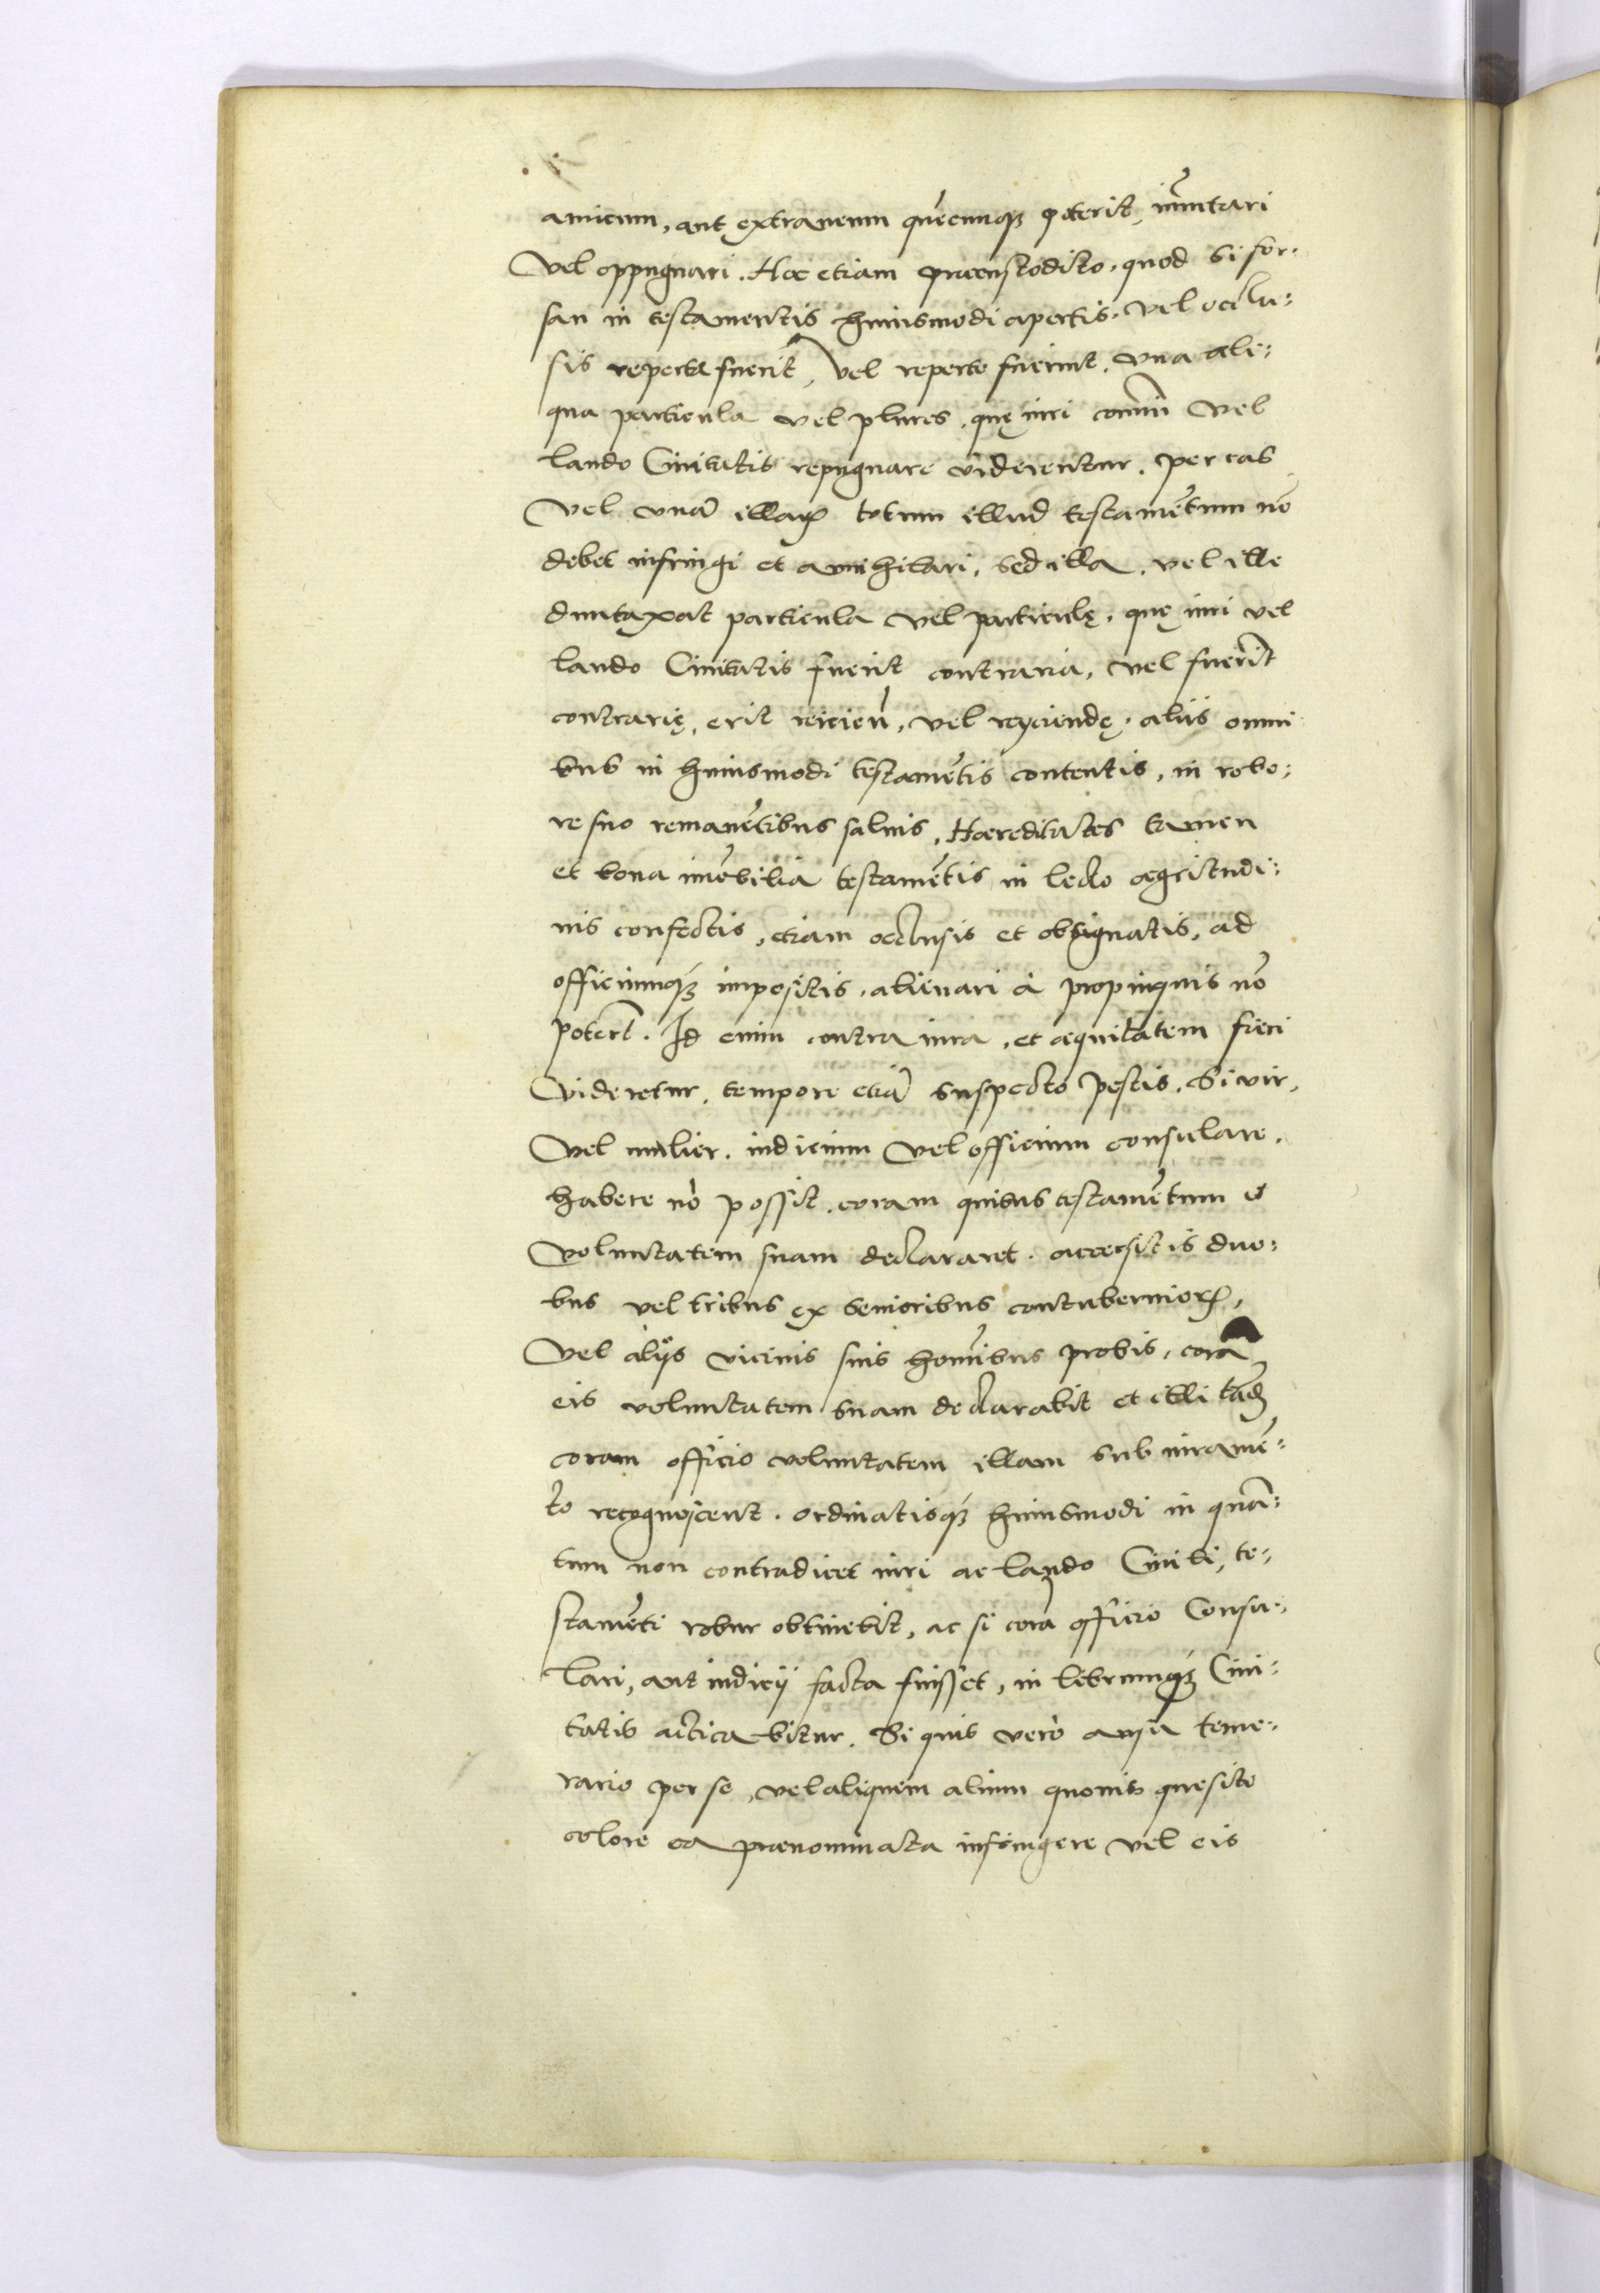 amicum, aut extraneum quecunq₃ poterit, im̃utari
Vel oppugnari. Hoc etiam præcustodito, quod si for-
san in testamentis huiusmodi apertis, vel occlu-
sis reperta fuerit, vel reperte fuerint, una ali-
qua particula vel plures, quę iuri com̃uni vel
laudo Civitatis repugnare viderentur, per eas
Vel unā illarꝝ totum illud testamētum nō
debet infringi et annihilari, sed illa, vel ille
duntaxat particula vel particulę, quę iuri vel
laudo Civitatis fuerit contraria, vel fuerint
contrarię, erit reicien, vel reyciendę, aliis omni
bus in huiusmodi testamētis contentis, in robo-
re suo remanētibus salvis, Hæreditates tamen
et bona imobilia testamētis in lecto ægritudi-
nis confectis, etiam occlusis et obsignatis, ad
officiumq₃ impositis, alienari à propinquis nō
poterit. Id enim contra iura, et æquitatem fieri
Videretur, tempore etiā suspecto pestis, Si vir,
Vel mulier, iudicium vel officium consulare,
habere nō possit, coram quibus testamētum et
Voluntatem suam declararet, accersitis duo-
bus vel tribus ex senioribus contuberniorꝝ,
Vel alijs vicinis suis homībus probis, corā
eis voluntatem suam declarabit et illi tādē
coram officio voluntatem illam sub iuramē-
to recognoscent. ordinatisq₃ huiusmodi in quā-
tum non contradicet iuri ac laudo Civiti, te-
stamēti robur obtinebit, ac si corā officio Consu-
lari, aut iudicij facta fuisset, in librumq₃ Civi-
tatis acticabitur. Si quis verò ausu teme-
rario per se, vel aliquem alium quovis quesito
colore ea prænominata infringere vel eis